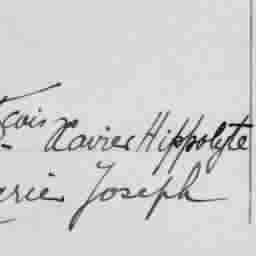 çois
- Xavier Hippolyte
erie Joseph